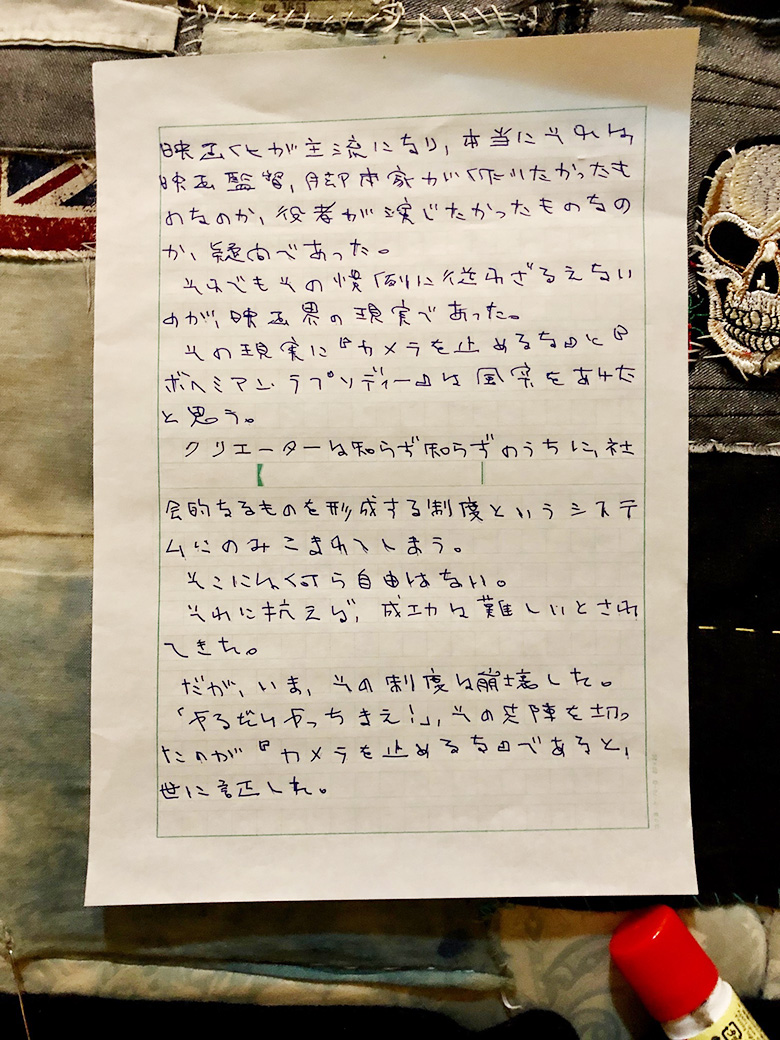 映画化が主流になり、本当にそれは
映画監督、脚本家が作りたかったも
のなのか、役者が演じたかったものなの
か、疑問であった。
それでもその慣例に従わざるえない
のが、映画界の現実であった。
その現実に『カメラを止めるな』と『
ボヘミアン・ラプソディー』は風穴をあけた
と思う。
クリエーターは知らず知らずのうちに、社
会的なるものを形成する制度というシステ
ムにのみこまれてしまう。
そこにはなんら自由はない。
それに抗えば、成功は難しいとされ
てきた。
だが、いま、その制度は崩壊した。
「やるだけやっちまえ!」、その先陣を切っ
たのが『カメラを止めるな』であると、
世に証した。